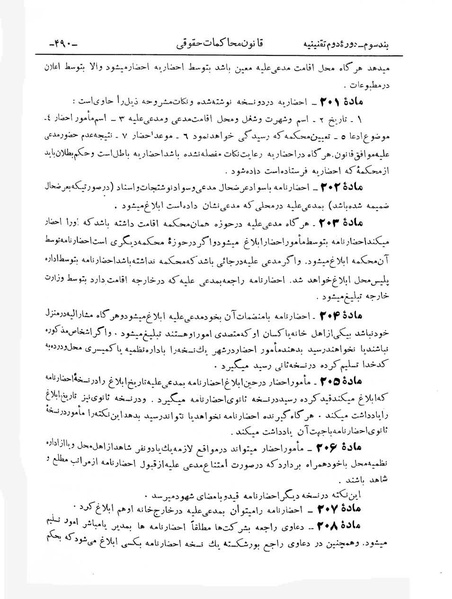 بند سوم ـ دورهٔ دوم تقنینیه قانون محاکمات حقوقی ـ۴۹۰ـ
میدهد هر گاه محل اقامت مدعی‌علیه معین باشد بتوسط احضاریه احضار میشود والا بتوسط اعلان
در مطبوعات .
مادهٔ ۲۰۱ ـ احضاریه در دو نسخه نوشته شده و نکات مشروحه ذیل را حاوی است :
۱ ـ تاریخ ۲ ـ اسم و شهرت و شغل و محل اقامت مدعی و مدعی علیه ۳ ـ اسم مأمور احضار ۴ـ
موضوع ادعا ۵ ـ تعیین محکمه که رسیدگی خواهد نمود ۶ ـ موعد احضار ۷ ـ نتیجه عدم حضور مدعی
علیه موافق قانون . هر گاه در احضاریه رعایت نکات مفصله نشده باشد احضاریه باطل است و حکم بطلان باید
از محکمهٔ که احضاریه فرستاده است داده شود .
مادهٔ ۲۰۲ ـ احضارنامه با سواد عرضحال مدعی و سواد نوشتجات و اسناد (در صورتیکه بعرضحال
ضمیمه شده باشد) بمدعی علیه در محلی که مدعی نشان داده است ابلاغ میشود .
مادهٔ ۲۰۳ ـ هر گاه مدعی علیه در حوزه همان محکمه اقامت داشته باشد که او را احضار
میکند احضارنامه بتوسط مأمور احضار ابلاغ میشود و اگر در حوزهٔ محکمه دیگری است احضارنامه توسط
آن محکمه ابلاغ میشود . و اگر مدعی علیه در جائی باشد که محکمه نداشته باشد احضارنامه بتوسط اداره
پلیس محل ابلاغ خواهد شد . احضارنامه راجعه بمدعی علیه که در خارجه اقامت دارد بتوسط وزارت
خارجه تبلیغ میشود .
مادهٔ ۲۰۴ ـ احضار نامه با منضمات آن بخود مدعی علیه ابلاغ میشود و هر گاه مشارالیه در منزل
خود نباشد بیکی از اهل خانه یا کسان او که متصدی امور او هستند تبلیغ میشود . و اگر اشخاص مذکوره
نباشند یا نخواهند رسید بدهند مأمور احضار در شهر یك نسخه را باداره نظمیه یا کمیسری محل و در ده به
کدخدا تسلیم کرده در نسخه ثانی رسید میگیرد .
مادهٔ ۲۰۵ ـ مأمور احضار در حین ابلاغ احضارنامه بمدعی علیه تاریخ ابلاغ را در نسخهٔ احضارنامه
که ابلاغ میکند قید کرده رسید در نسخه ثانوی احضارنامه میگیرد . و در نسخه ثانوی نیز تاریخ ابلاغ
را یادداشت میکند . هر گاه گیرنده احضارنامه نخواهد یا نتواند رسید بدهد این نکته را مأمور در نسخهٔ
ثانوی احضارنامه با جهت آن یادداشت میکند .
مادهٔ ۲۰۶ ـ مأمور احضار میتواند در مواقع لازمه یك یا دو نفر شاهد از اهل محل و یا از اداره
نظمیه محل با خود همراه بردارد که در صورت امتناع مدعی علیه از قبول احضارنامه از مراتب مطلع و
شاهد باشند .
این نکته در نسخه دیگر احضارنامه قید و بامضای شهود میرسد .
مادهٔ ۲۰۷ ـ احضارنامه را میتوان بمدعی علیه در خارج خانه او هم ابلاغ کرد .
مادهٔ ۲۰۸ ـ دعاوی راجعه بشرکت‌ها مطلقاً احضارنامه ها بمدیر یا مباشر امور تسلیم
میشود . وهمچنین در دعاوی راجع بورشکسته یك نسخه احضارنامه بکسی ابلاغ میشود که بحکم